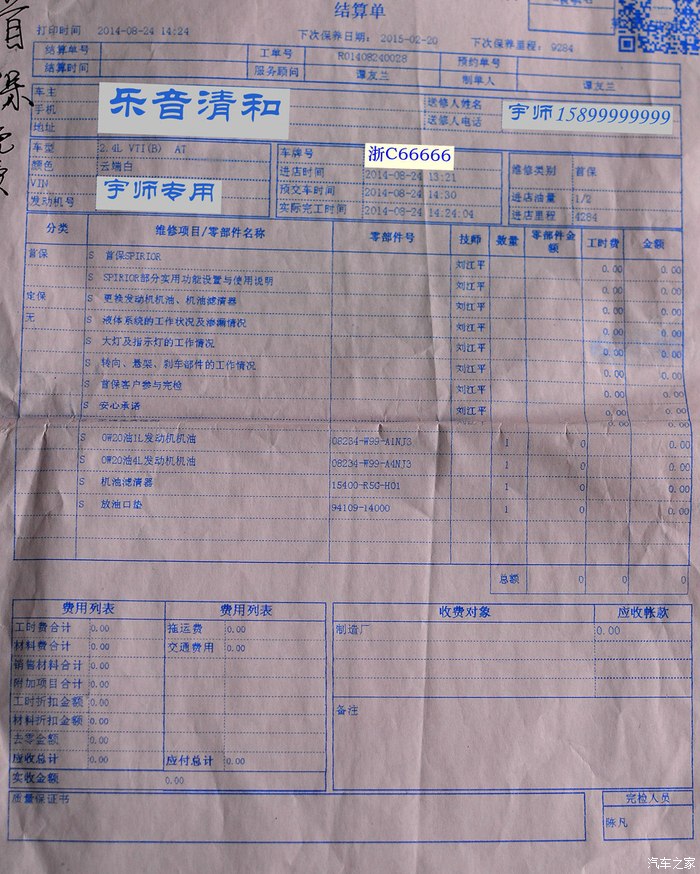 结算单
打印时间 2014-08-24 14:24 下次保养日期: 2015-02-20 下次保养里程: 9284
结算单号 工单号 RO1408240028 预约单号
结算时间 服务顾问 谭友兰 制单人 谭友兰
车主 乐音清和 送修人姓名 宇师15899999999
手机 送修人电话
地址
车型 2.4L VTI(B) AT 车牌号 浙C66666 维修类别 首保
颜色 云端白 进店时间 2014-08-24 13:21
VIN 宇师专用 预交车时间 2014-08-24 14:30 进店油量 1/2
发动机号 实际完工时间 2014-08-24 14:24:04 进店里程 4284
分类 维修项目/零部件名称 零部件号 技师 数量 零部件金额 工时费 金额
首保 S 首保SPIRIOR 刘江平 0.00 0.00
S SPIRIOR部分实用功能设置与使用说明 刘江平 0.00 0.00
定保 S 更换发动机机油、机油滤清器 刘江平 0.00 0.00
无 S 液体系统的工作状况及渗漏情况 刘江平 0.00 0.00
S 大灯及指示灯的工作情况 刘江平 0.00 0.00
S 转向、悬架、刹车部件的工作情况 刘江平 0.00 0.00
S 首保客户参与完检 刘江平 0.00 0.00
S 安心承诺 刘江平 0.00 0.00
S 0W20油1L发动机机油 08234-W99-A1NJ3 1 0 0.00
S 0W20油4L发动机机油 08234-W99-A4NJ3 1 0 0.00
S 机油滤清器 15400-R5G-H01 1 0 0.00
S 放油口垫 94109-14000 1 0 0.00
总额 0 0 0
费用列表 费用列表 收费对象 应收帐款
工时费合计 0.00 拖运费 0.00 制造厂 0.00
材料费合计 0.00 交通费用 0.00
销售材料合计 0.00
附加项目合计 0.00
工时折扣金额 0.00 备注
材料折扣金额 0.00
去零金额 0.00
应收总计 0.00 应付总计 0.00
实收金额 0.00
质量保证书 完检人员
陈凡
汽车之家